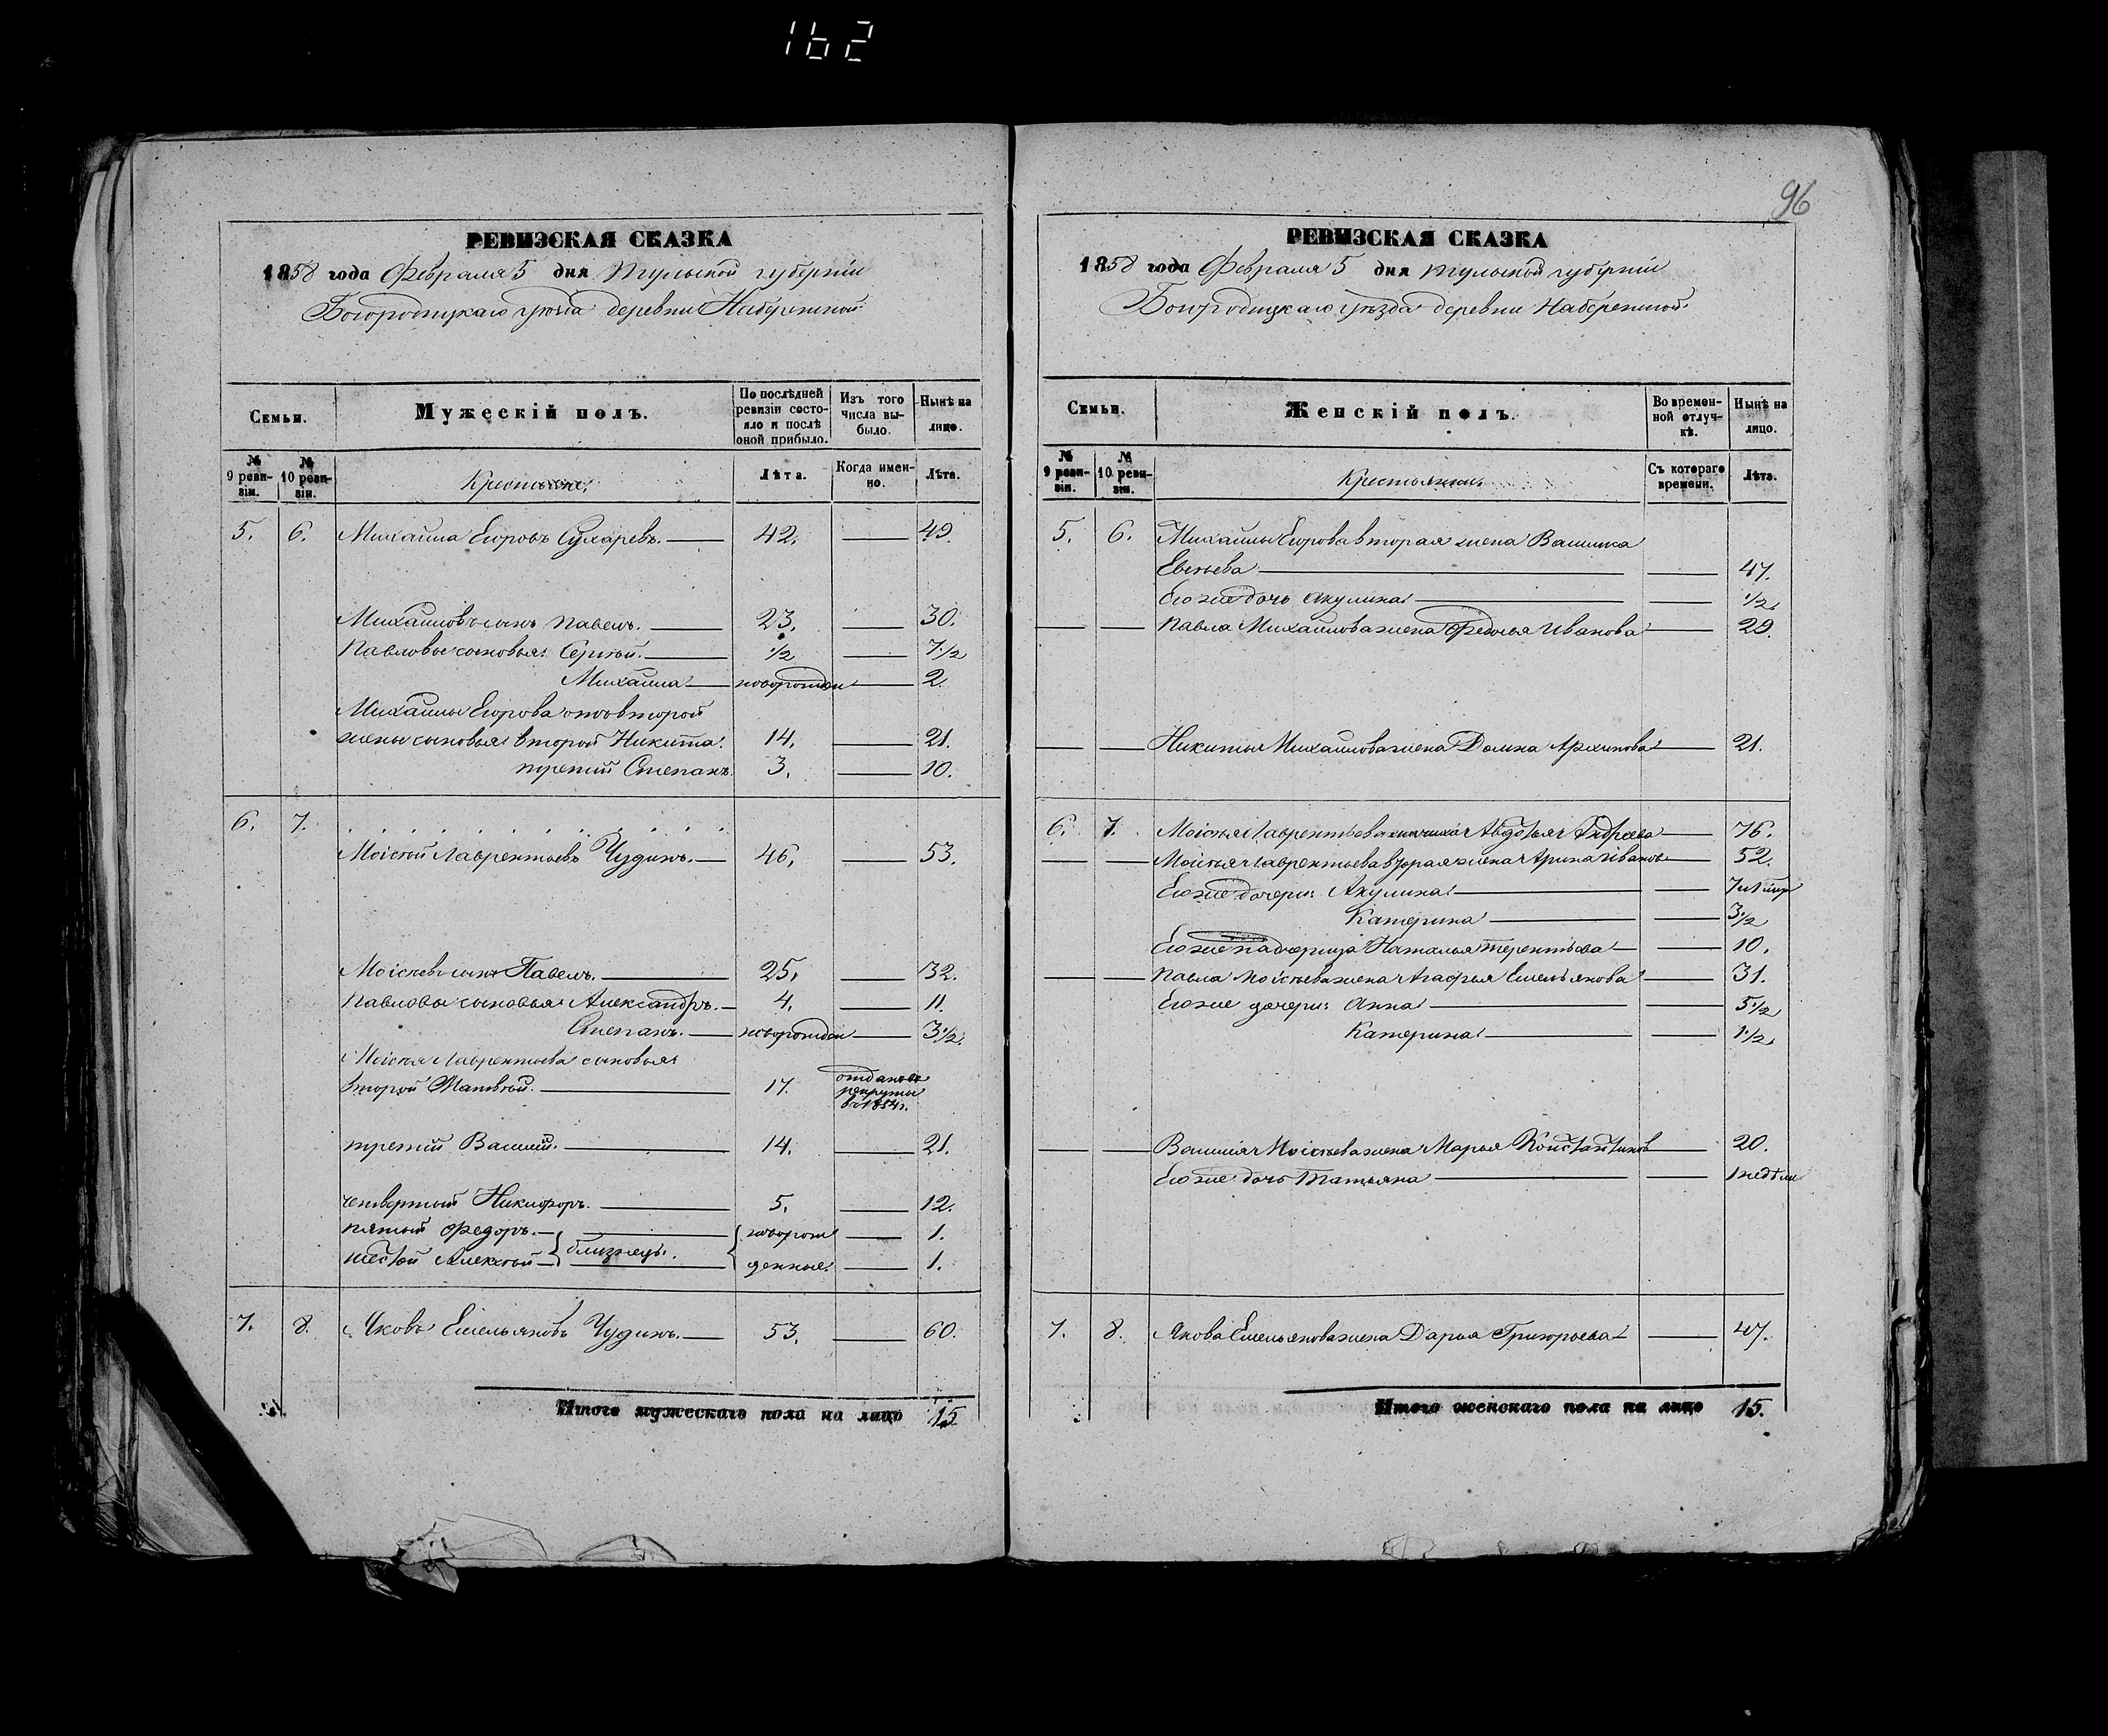 162
РЕВИЗСКАЯ СКАЗКА
1858 года Февраля 5 дня Тульской губерніи
Богородицкаго уѣзда деревни Набережной
Семьи.
Мужескій полъ.
По послѣдней ревизіи состояло и послѣ оной прибыло.
Изъ того числа выбыло.
Нынѣ на лицо.
№ 9 ревизіи.
№ 10 ревизіи.
Крестьяне.
Лѣта.
Когда именно.
Лѣта.
5. 6. Михаила Егоровъ Сухаревъ. 42. 49.
Михайловъ сынъ Павелъ. 23. 30.
Павловы сыновья: Сергѣй. 1/2 7 1/2
Михаила новорожден 2.
Михаилы Егорова отъ второй
жены сыновья: второй Никита. 14. 21.
третій Степанъ. 3. 10.
6. 7.
Моісѣй Лаврентьевъ Чудинъ. 46. 53.
Моісѣевъ сынъ Павелъ. 25. 32.
Павловы сыновья: Александръ. 4. 11.
Степанъ. новорожден 3 1/2.
Моісѣя Лаврентьева сыновья:
второй Матвѣй. 17. отданъ въ рекруты въ 1854 г.
третій Василій. 14. 21.
четвертый Никифоръ. 5. 12.
пятый Федоръ. новорож 1.
близнецы.
шестой Алексѣй денные. 1.
7. 8. Яковъ Емельяновъ Чудинъ. 53. 60.
Итого мужескаго пола на лицо 15.
96
РЕВИЗСКАЯ СКАЗКА
1858 года Февраля 5 дня Тульской губерніи
Богородицкаго уѣзда деревни Набережной.
Семьи.
Женскій полъ.
Во временной отлучкѣ.
Нынѣ на лицо.
№ 9 ревизіи.
№ 10 ревизіи.
Крестьянки.
Съ котораго времени.
Лѣта.
5. 6. Михаилы Егорова вторая жена
47.
Его же дочь Акулина 1/2.
Павла Михайлова жена Федосья Иванова 29.
Никиты Михайлова жена Домна Архипова 21.
6. 7. Моісѣя Лаврентьева мачиха Авдотья Андреева 76.
Моісѣя Лаврентьева вторая жена Арина Иванов 52.
Его же дочери: Акулина 7
Катерина 3 1/2
Его же падчерица Наталья Терентьева 10.
Павла Моісѣева жена Агафья Емельянова 31.
Его же дочери: Анна 5 1/2
Катерина 1 1/2.
Василія Моісѣева жена Марья Константинов 20.
Его же дочь Татьяна 1 недѣли
7. 8. Якова Емельянова жена Дарья Григорьева 47.
Итого женскаго пола на лицо 15.